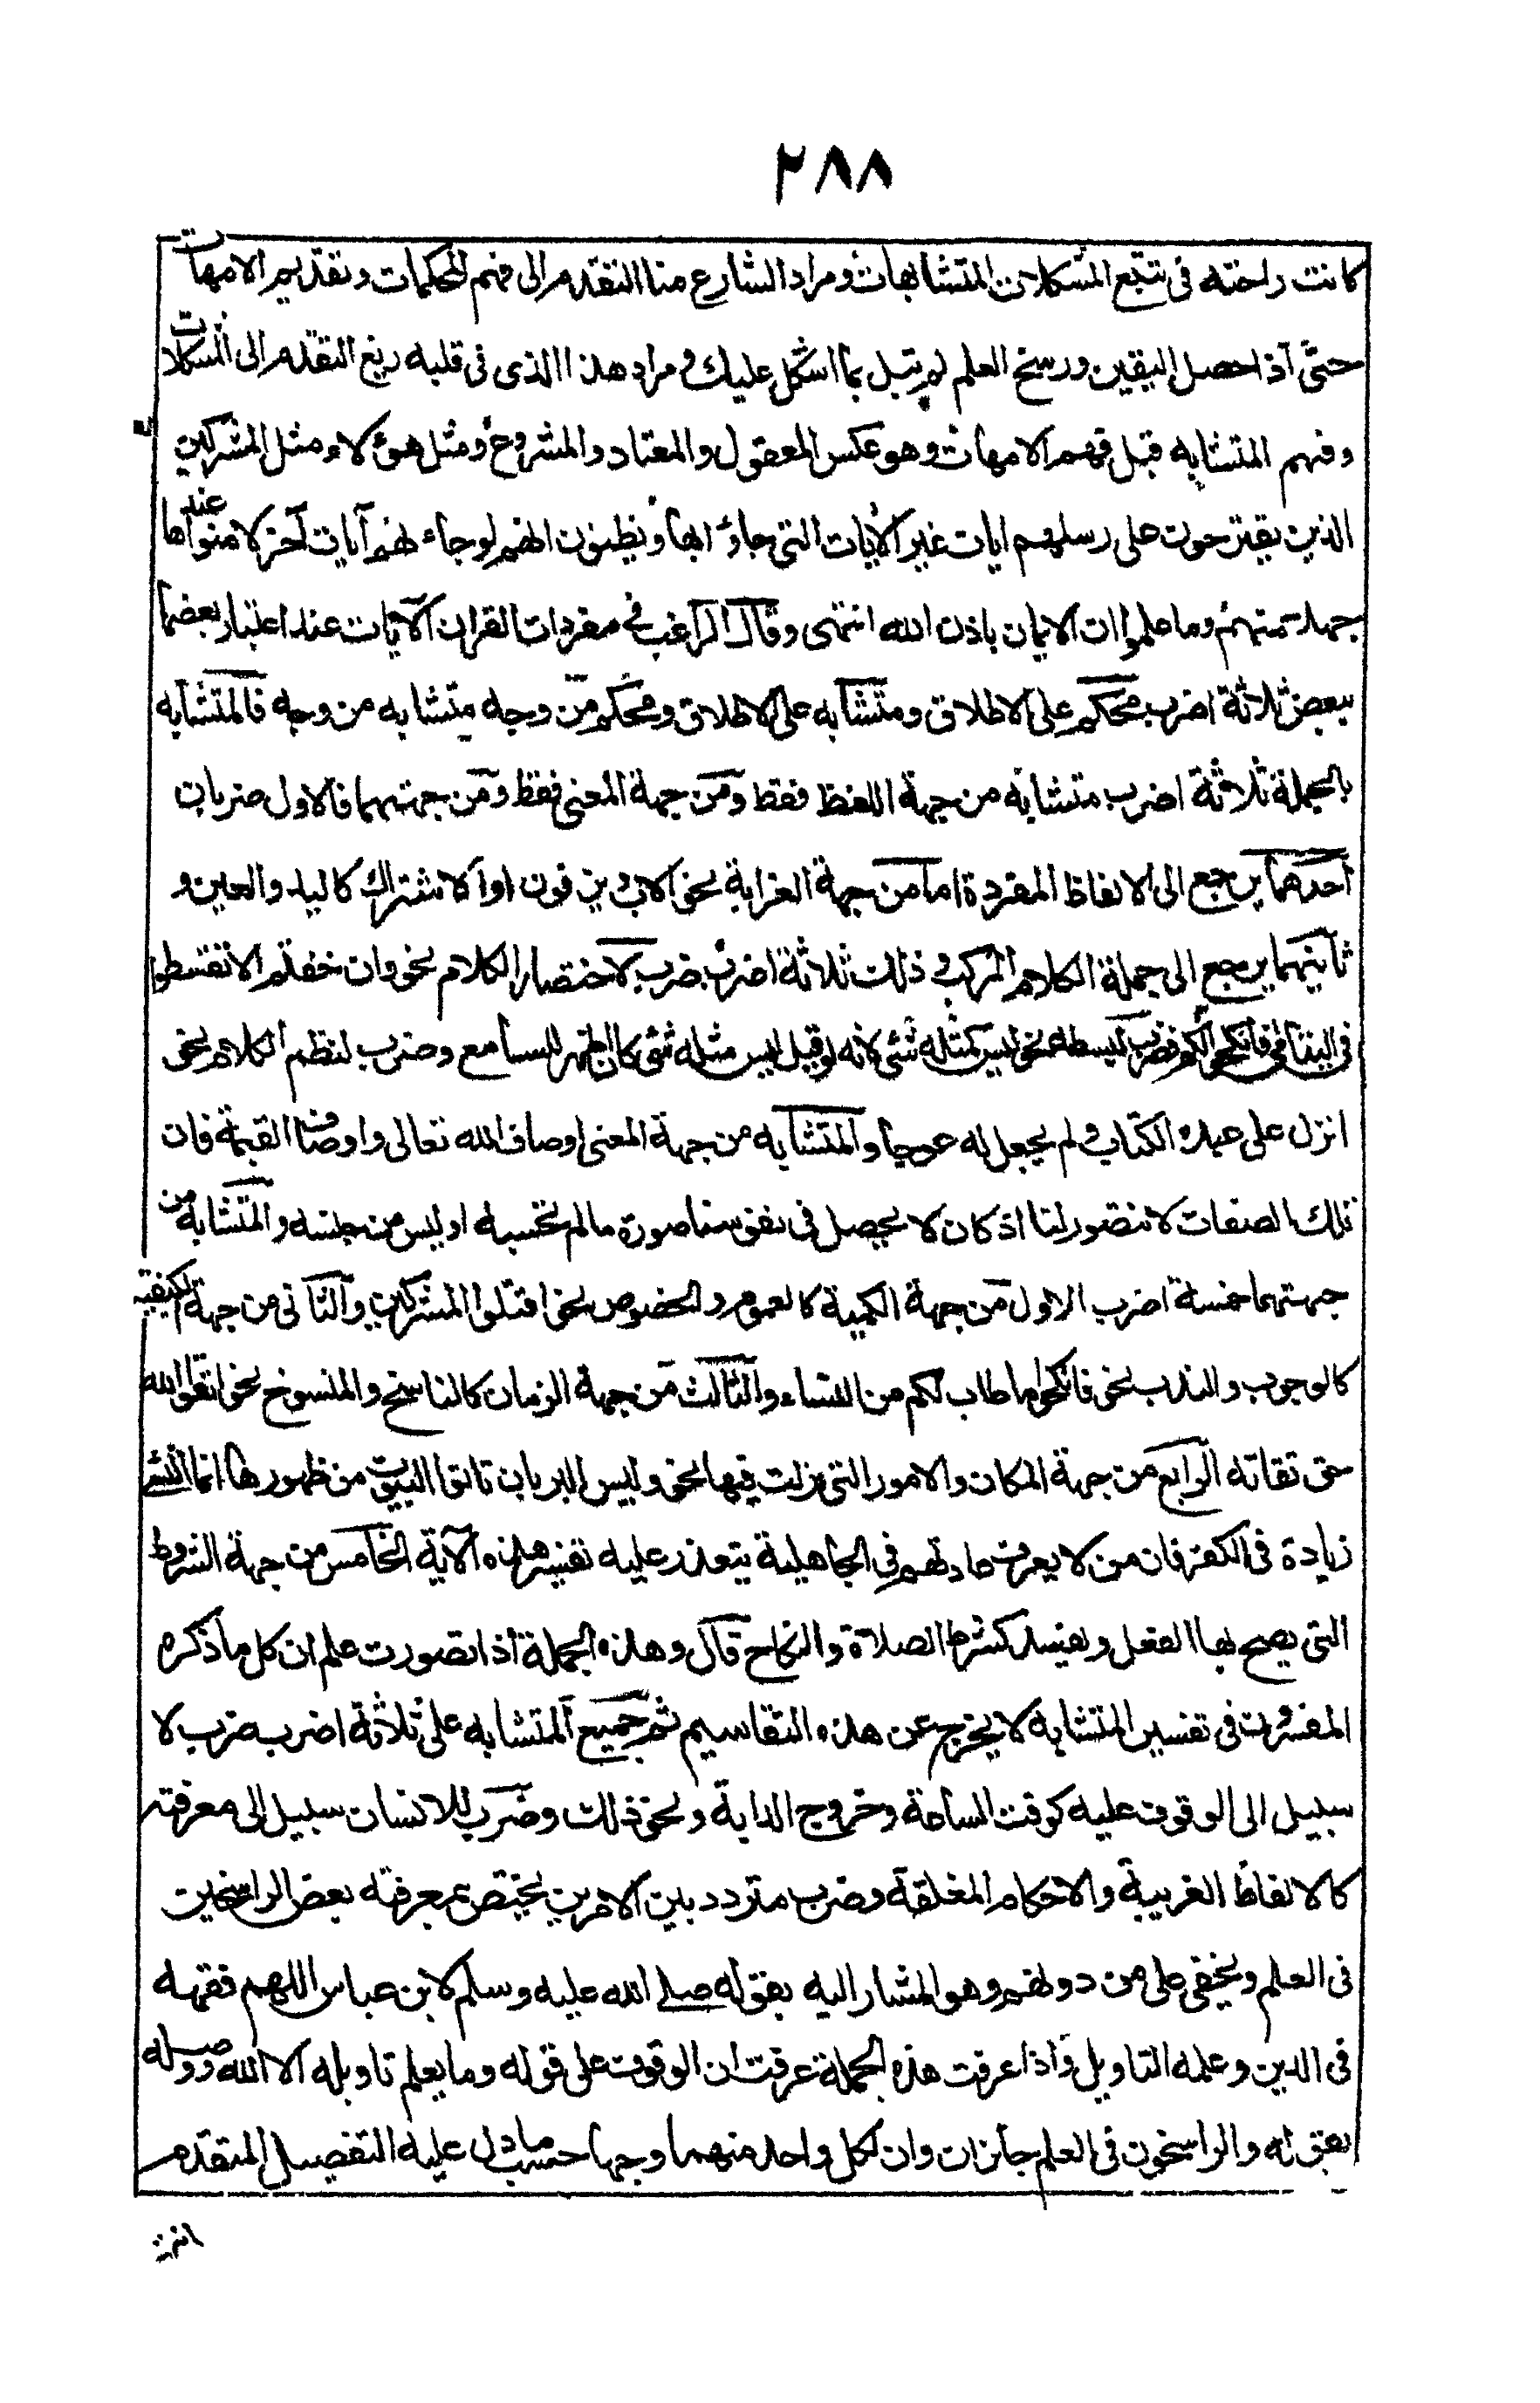 ٢٨٨
كانت راحته في تتبع المشكلات المتشابهات ومراد الشارع منا التقدم الى فهم المحكمات وتقديم الامهات
حتى اذا حصل اليقين ورسخ العلم لم تبل بما اشكل عليك ومراد هذا الذي في قلبه زيغ التقدم الى المشكلات
وفهم المتشابه قبل فهم الامهات وهو عكس المعقول والمعتاد والمشروع ومثل هؤلاء مثل المشركين
الذين يقترحون على رسلهم ايات غير الآيات التي جاؤا بها ويظنون انهم لو جاءتهم آيات آخر لآمنوا عندها
جهلا منهم وما علموا ان الايمان باذن الله انتهى وقال الراغب في مفردات القران الآيات عند اعتبار بعضها
ببعض ثلاثة اضرب محكم على الاطلاق ومتشابه على الاطلاق ومحكم من وجه متشابه من وجه فالمتشابه
بالجملة ثلاثة اضرب متشابه من جهة اللفظ فقط ومن جهة المعنى فقط ومن جهتهما فالاول ضربان
احدهما يرجع الى الالفاظ المفردة اما من جهة الغرابة نحو الاب ويزفون او الاشتراك كاليد والعين و
ثانيهما يرجع الى جملة الكلام المركب وذلك ثلاثة اضرب ضرب لاختصار الكلام نحو وان خفتم الا تقسطوا
في اليتامى فانكحوا لكم وضرب لبسطه نحو ليس كمثله شئ لانه لو قيل ليس مثله شئ كان اظهر للسامع وضرب لنظم الكلام نحو
انزل على عبده الكتاب ولم يجعل له عوجا والمتشابه من جهة المعنى اوصاف الله تعالى واوصاف القيمة فان
تلك الصفات لا تتصور لنا اذ كان لا يحصل في نفوسنا صورة ما لم نحسه او ليس من جنسه والمتشابه من
جهتهما خمسة اضرب الاول من جهة الكمية كالعموم والخصوص نحو اقتلوا المشركين والثاني من جهة الكيفية
كالوجوب والندب نحو فانكحوا ما طاب لكم من النساء والثالث من جهة الزمان كالناسخ والمنسوخ نحو اتقوا الله
حق تقاته الرابع من جهة المكان والامور التي نزلت فيها نحو وليس البر بان تاتوا البيوت من ظهورها انما النسئ
زيادة في الكفر فان من لا يعرف عادتهم في الجاهلية يتعذر عليه تفسير هذه الآية الخامس من جهة الشروط
التي يصح بها الفعل ويفسد كشرط الصلاة والنكاح قال وهذه الجملة اذا تصورت علم ان كل ما ذكره
المفسرون في تفسير المتشابه لا يخرج عن هذه التقاسيم ثم جميع المتشابه على ثلاثة اضرب ضرب لا
سبيل الى الوقوف عليه كوقت الساعة وخروج الدابة ونحو ذلك وضرب للانسان سبيل الى معرفته
كالالفاظ الغريبة والاحكام المغلقة وضرب متردد بين الامرين يختص بمعرفته بعض الراسخين
في العلم ويخفى على من دونهم وهو المشار اليه بقوله صلى الله عليه وسلم لابن عباس اللهم فقهه
في الدين وعلمه التاويل واذا عرفت هذه الجملة عرفت ان الوقوف على قوله وما يعلم تاويله الا الله ووصله
بقوله والراسخون في العلم جائزان وان لكل واحد منهما وجها حسب ما دل عليه التفصيل المتقدم